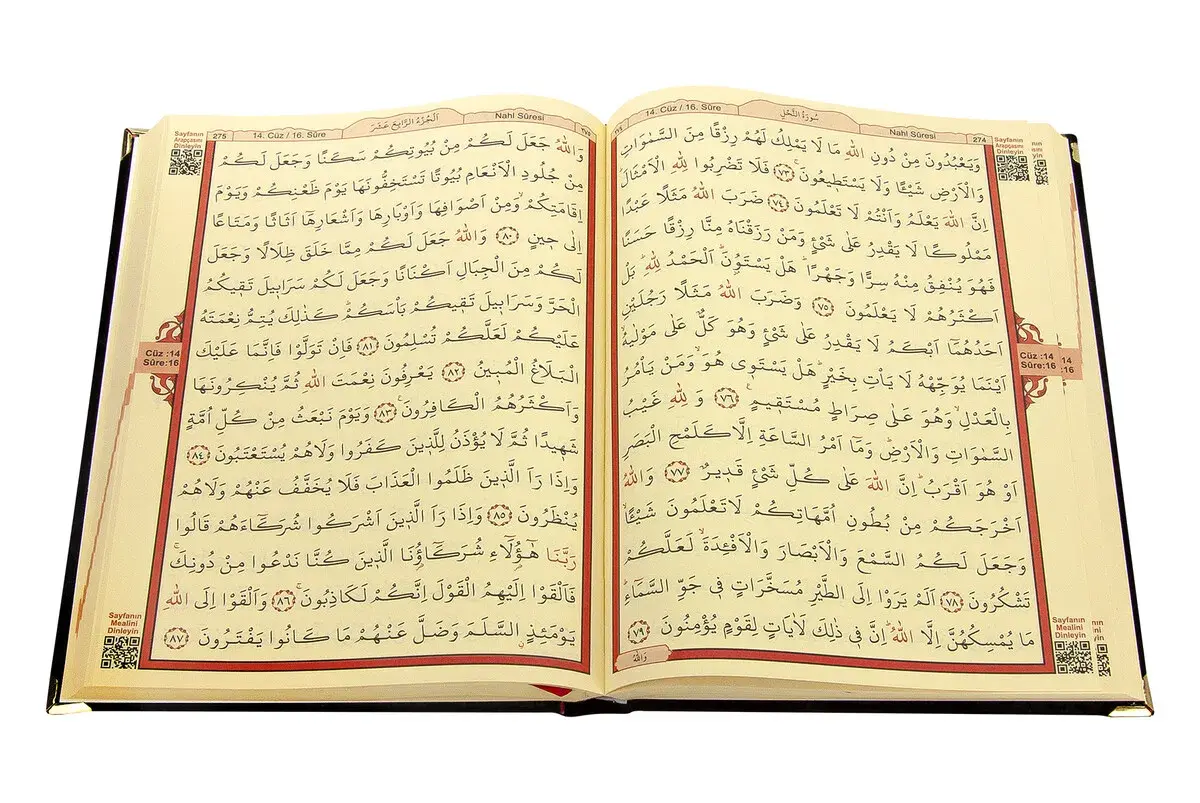 274
Nahl Sûresi
سُورَةُ النَّحْلِ
14. Cüz / 16. Sûre
وَيَعْبُدُونَ مِنْ دُونِ اللّٰهِ مَا لَا يَمْلِكُ لَهُمْ رِزْقًا مِنَ السَّمٰوَاتِ
وَالْاَرْضِ شَيْـًٔا وَلَا يَسْتَط۪يعُونَۚ ﴿٧٣﴾ فَلَا تَضْرِبُوا لِلّٰهِ الْاَمْثَالَۜ
اِنَّ اللّٰهَ يَعْلَمُ وَاَنْتُمْ لَا تَعْلَمُونَ ﴿٧٤﴾ ضَرَبَ اللّٰهُ مَثَلًا عَبْدًا
مَمْلُوكًا لَا يَقْدِرُ عَلٰى شَيْءٍ وَمَنْ رَزَقْنَاهُ مِنَّا رِزْقًا حَسَنًا
فَهُوَ يُنْفِقُ مِنْهُ سِرًّا وَجَهْرًاۜ هَلْ يَسْتَوُ۫نَۜ اَلْحَمْدُ لِلّٰهِۜ بَلْ
اَكْثَرُهُمْ لَا يَعْلَمُونَ ﴿٧٥﴾ وَضَرَبَ اللّٰهُ مَثَلًا رَجُلَيْنِ
اَحَدُهُمَٓا اَبْكَمُ لَا يَقْدِرُ عَلٰى شَيْءٍ وَهُوَ كَلٌّ عَلٰى مَوْلٰيهُۙ
اَيْنَمَا يُوَجِّهْهُ لَا يَأْتِ بِخَيْرٍۜ هَلْ يَسْتَو۪ي هُوَۙ وَمَنْ يَأْمُرُ
بِالْعَدْلِۙ وَهُوَ عَلٰى صِرَاطٍ مُسْتَق۪يمٍ۟ ﴿٧٦﴾ وَلِلّٰهِ غَيْبُ
السَّمٰوَاتِ وَالْاَرْضِۜ وَمَٓا اَمْرُ السَّاعَةِ اِلَّا كَلَمْحِ الْبَصَرِ
اَوْ هُوَ اَقْرَبُۜ اِنَّ اللّٰهَ عَلٰى كُلِّ شَيْءٍ قَد۪يرٌ ﴿٧٧﴾ وَاللّٰهُ
اَخْرَجَكُمْ مِنْ بُطُونِ اُمَّهَاتِكُمْ لَا تَعْلَمُونَ شَيْـًٔاۙ
وَجَعَلَ لَكُمُ السَّمْعَ وَالْاَبْصَارَ وَالْاَفْـِٔدَةَۙ لَعَلَّكُمْ
تَشْكُرُونَ ﴿٧٨﴾ اَلَمْ يَرَوْا اِلَى الطَّيْرِ مُسَخَّرَاتٍ ف۪ي جَوِّ السَّمَٓاءِۜ
مَا يُمْسِكُهُنَّ اِلَّا اللّٰهُۜ اِنَّ ف۪ي ذٰلِكَ لَاٰيَاتٍ لِقَوْمٍ يُؤْمِنُونَ ﴿٧٩﴾
وَاللّٰهُ
Sayfanın
Arapçasını
Dinleyin
Cüz :14
Sûre:16
14
:16
Sayfanın
Mealini
Dinleyin
275
14. Cüz / 16. Sûre
اَلْجُزْءُ الرَّابِعَ عَشَرَ
Nahl Sûresi
٢٧٥
وَاللّٰهُ جَعَلَ لَكُمْ مِنْ بُيُوتِكُمْ سَكَنًا وَجَعَلَ لَكُمْ
مِنْ جُلُودِ الْاَنْعَامِ بُيُوتًا تَسْتَخِفُّونَهَا يَوْمَ ظَعْنِكُمْ وَيَوْمَ
اِقَامَتِكُمْۙ وَمِنْ اَصْوَافِهَا وَاَوْبَارِهَا وَاَشْعَارِهَٓا اَثَاثًا وَمَتَاعًا
اِلٰى ح۪ينٍ ﴿٨٠﴾ وَاللّٰهُ جَعَلَ لَكُمْ مِمَّا خَلَقَ ظِلَالًا وَجَعَلَ
لَكُمْ مِنَ الْجِبَالِ اَكْنَانًا وَجَعَلَ لَكُمْ سَرَاب۪يلَ تَق۪يكُمُ
الْحَرَّ وَسَرَاب۪يلَ تَق۪يكُمْ بَأْسَكُمْۜ كَذٰلِكَ يُتِمُّ نِعْمَتَهُ
عَلَيْكُمْ لَعَلَّكُمْ تُسْلِمُونَ ﴿٨١﴾ فَاِنْ تَوَلَّوْا فَاِنَّمَا عَلَيْكَ
الْبَلَاغُ الْمُب۪ينُ ﴿٨٢﴾ يَعْرِفُونَ نِعْمَتَ اللّٰهِ ثُمَّ يُنْكِرُونَهَا
وَاَكْثَرُهُمُ الْكَافِرُونَ۟ ﴿٨٣﴾ وَيَوْمَ نَبْعَثُ مِنْ كُلِّ اُمَّةٍ
شَه۪يدًا ثُمَّ لَا يُؤْذَنُ لِلَّذ۪ينَ كَفَرُوا وَلَا هُمْ يُسْتَعْتَبُونَ ﴿٨٤﴾
وَاِذَا رَاَ الَّذ۪ينَ ظَلَمُوا الْعَذَابَ فَلَا يُخَفَّفُ عَنْهُمْ وَلَا هُمْ
يُنْظَرُونَ ﴿٨٥﴾ وَاِذَا رَاَ الَّذ۪ينَ اَشْرَكُوا شُرَكَٓاءَهُمْ قَالُوا
رَبَّنَا هٰٓؤُ۬لَٓاءِ شُرَكَٓاؤُ۬نَا الَّذ۪ينَ كُنَّا نَدْعُوا مِنْ دُونِكَۚ
فَاَلْقَوْا اِلَيْهِمُ الْقَوْلَ اِنَّكُمْ لَكَاذِبُونَۚ ﴿٨٦﴾ وَاَلْقَوْا اِلَى اللّٰهِ
يَوْمَئِذٍۨ السَّلَمَ وَضَلَّ عَنْهُمْ مَا كَانُوا يَفْتَرُونَ ﴿٨٧﴾
Sayfanın
Arapçasını
Dinleyin
Cüz :14
Sûre:16
Sayfanın
Mealini
Dinleyin